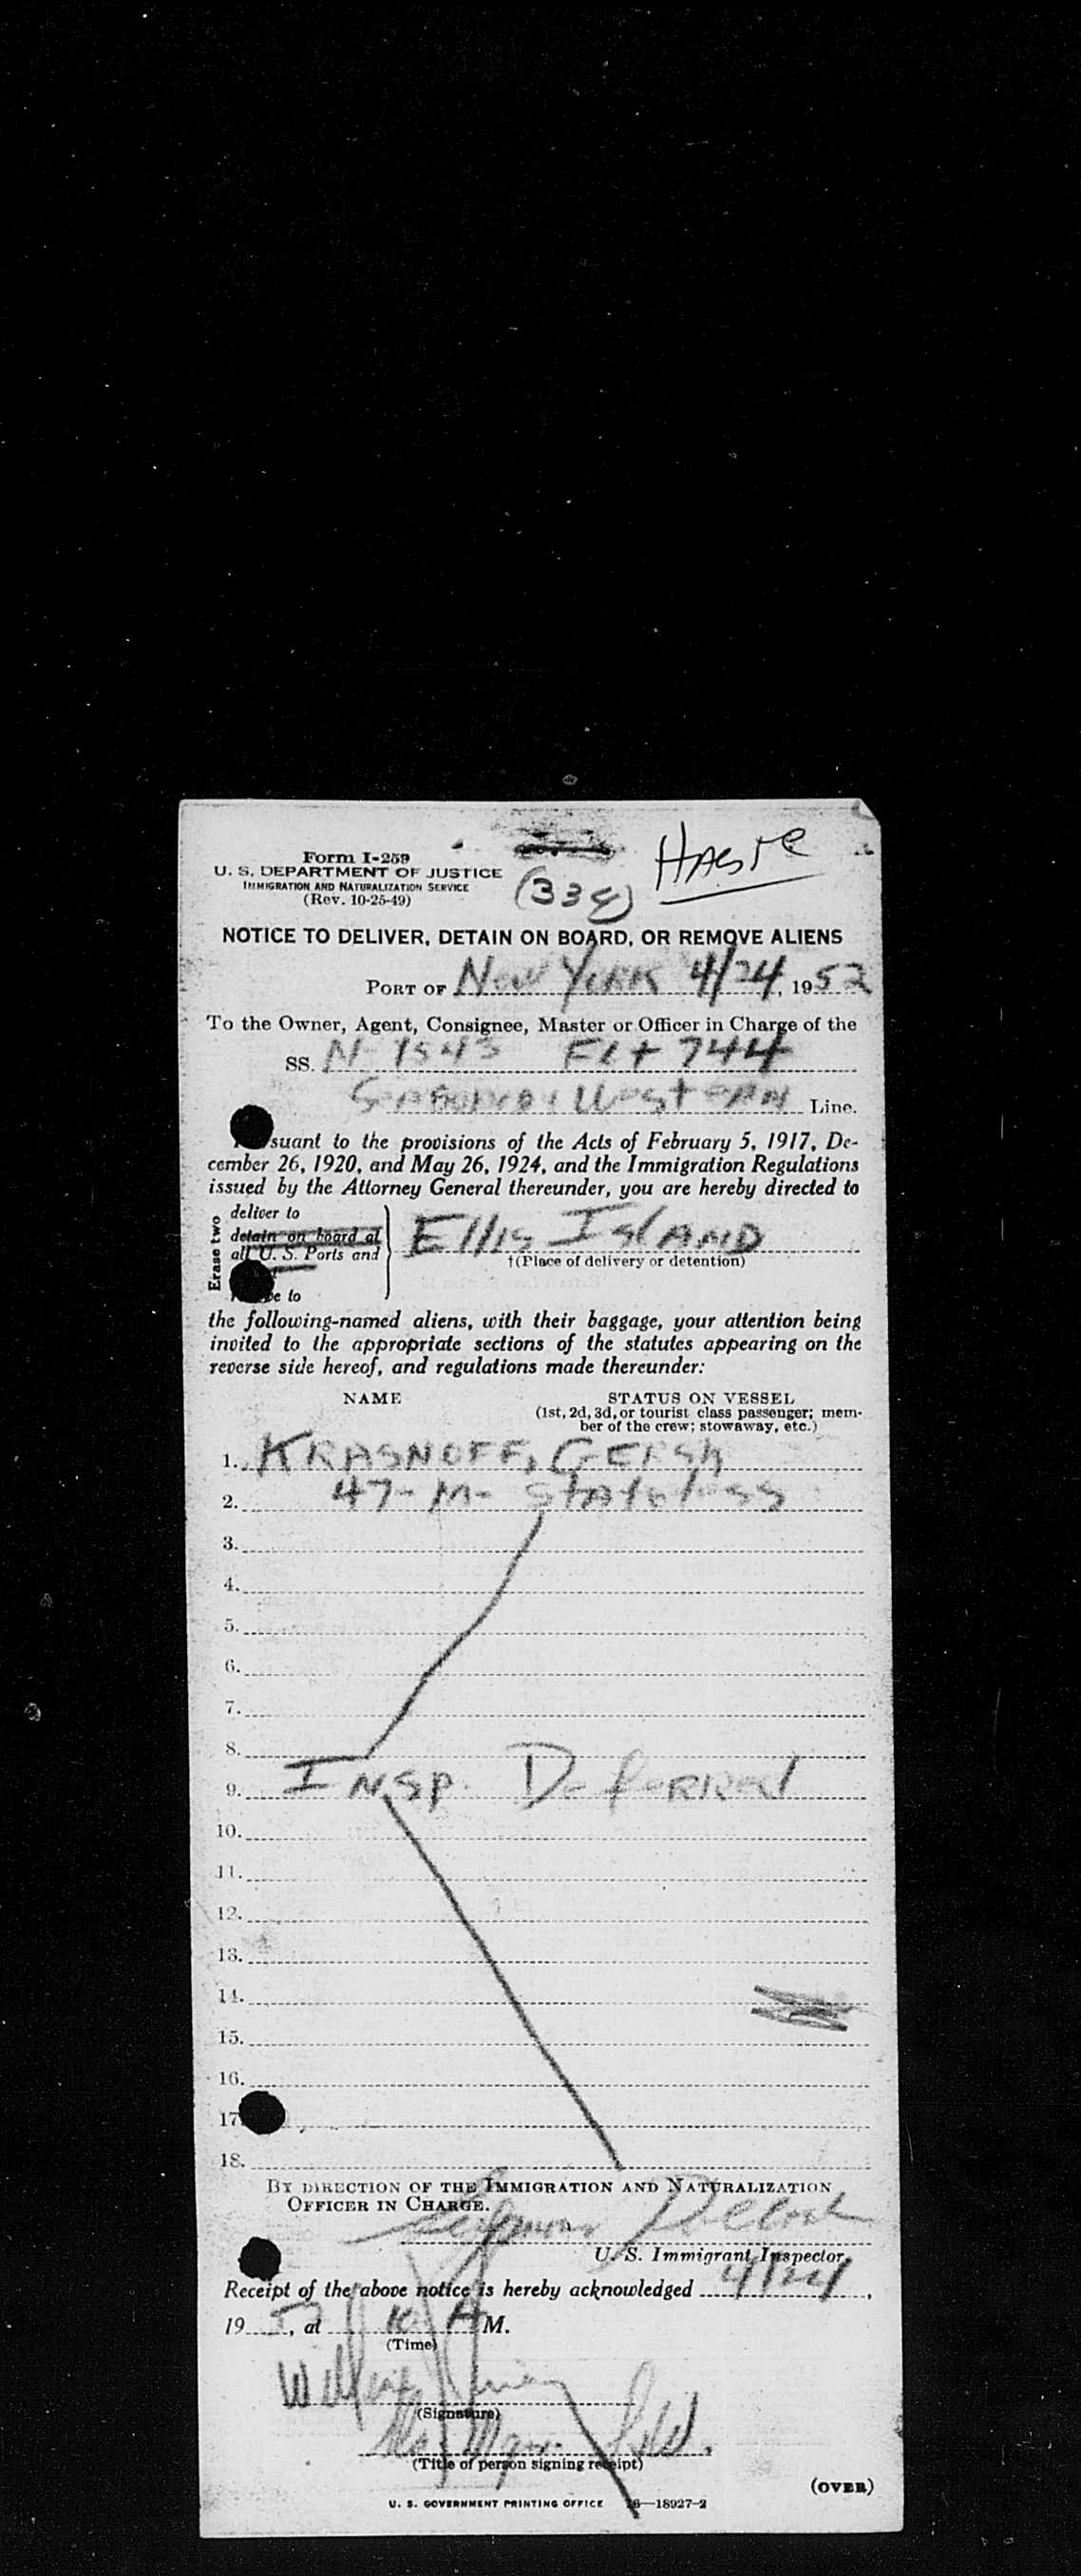 Form I-259
U. S. DEPARTMENT OF JUSTICE
IMMIGRATION AND NATURALIZATION SERVICE
(Rev. 10-25-49)
NOTICE TO DELIVER, DETAIN ON BOARD, OR REMOVE ALIENS
PORT OF New York 4/24, 1952
To the Owner, Agent, Consignee, Master or Officer in Charge of the
SS. N-1543 Flt 744
Western Line.
suant to the provisions of the Acts of February 5, 1917, De-
cember 26, 1920, and May 26, 1924, and the Immigration Regulations
issued by the Attorney General thereunder, you are hereby directed to
Erase two
deliver to
detain on board at
all U. S. Ports and
to
Ellis Island
†(Place of delivery or detention)
the following-named aliens, with their baggage, your attention being
invited to the appropriate sections of the statutes appearing on the
reverse side hereof, and regulations made thereunder:
NAME STATUS ON VESSEL
(1st, 2d, 3d, or tourist class passenger; mem-
ber of the crew; stowaway, etc.)
1. KRASNOFF, GERSH
2. 47-M- Stateless
3.
4.
5.
6.
7.
8.
9. Insp. Deferred
10.
11.
12.
13.
14.
15.
16.
17.
18.
BY DIRECTION OF THE IMMIGRATION AND NATURALIZATION
OFFICER IN CHARGE.
U. S. Immigrant Inspector.
Receipt of the above notice is hereby acknowledged 4/24,
19 52, at 10 A M.
(Time)
(Signature)
(Title of person signing receipt)
(OVER)
U. S. GOVERNMENT PRINTING OFFICE 16—18927-2